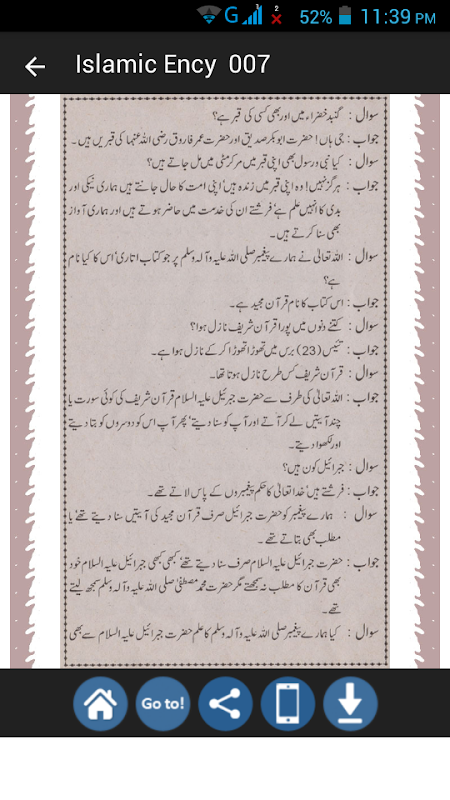 52% 11:39 PM
Islamic Ency 007
سوال : گنبد خضراء میں اور بھی کسی کی قبر ہے؟
جواب : جی ہاں! حضرت ابو بکر صدیق اور حضرت عمر فاروق رضی اللہ عنہما کی قبریں ہیں۔
سوال : کیا نبی و رسول بھی اپنی قبر میں مر کر مٹی میں مل جاتے ہیں؟
جواب : ہرگز نہیں! وہ اپنی قبر میں زندہ ہیں' اپنی امت کا حال جانتے ہیں ہماری نیکی اور
بدی کا انہیں علم ہے' فرشتے ان کی خدمت میں حاضر ہوتے ہیں اور ہماری آواز
بھی سنا کرتے ہیں۔
سوال : اللہ تعالیٰ نے ہمارے پیغمبر صلی اللہ علیہ وآلہ وسلم پر جو کتاب اتاری' اس کا کیا نام
ہے؟
جواب : اس کتاب کا نام قرآن مجید ہے۔
سوال : کتنے دنوں میں پورا قرآن شریف نازل ہوا؟
جواب : تئیس (23) برس میں تھوڑا تھوڑا کر کے نازل ہوا ہے۔
سوال : قرآن شریف کس طرح نازل ہوتا تھا۔
جواب : اللہ تعالیٰ کی طرف سے حضرت جبرئیل علیہ السلام قرآن شریف کی کوئی سورت یا
چند آیتیں لے کر آتے اور آپ کو سنا دیتے' پھر آپ اس کو دوسروں کو بتا دیتے
اور لکھوا دیتے۔
سوال : جبرائیل کون ہیں؟
جواب : فرشتے ہیں' خدا تعالیٰ کا حکم پیغمبروں کے پاس لاتے تھے۔
سوال : ہمارے پیغمبر کو حضرت جبرائیل صرف قرآن مجید کی آیتیں سنا دیتے تھے' یا
مطلب بھی بتاتے تھے۔
جواب : حضرت جبرئیل علیہ السلام صرف سنا دیتے تھے' کبھی کبھی جبرائیل علیہ السلام خود
بھی قرآن کا مطلب نہ سمجھتے مگر حضرت محمد مصطفیٰ صلی اللہ علیہ وآلہ وسلم سمجھ لیتے
تھے۔
سوال : کیا ہمارے پیغمبر صلی اللہ علیہ وآلہ وسلم کا علم حضرت جبرائیل علیہ السلام سے بھی
Go to!